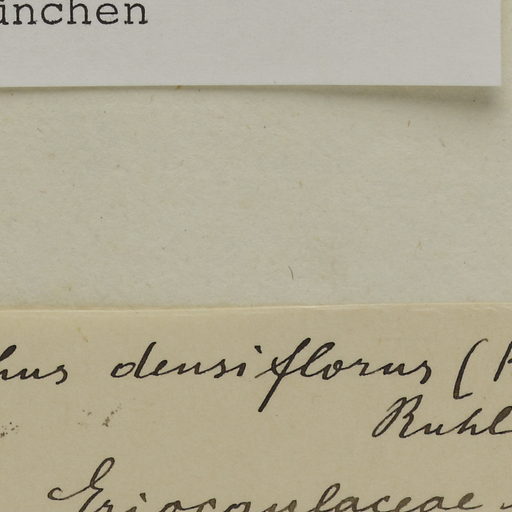 ünchen
hus densiflorus (
Ruhl
Eriocaulaceae